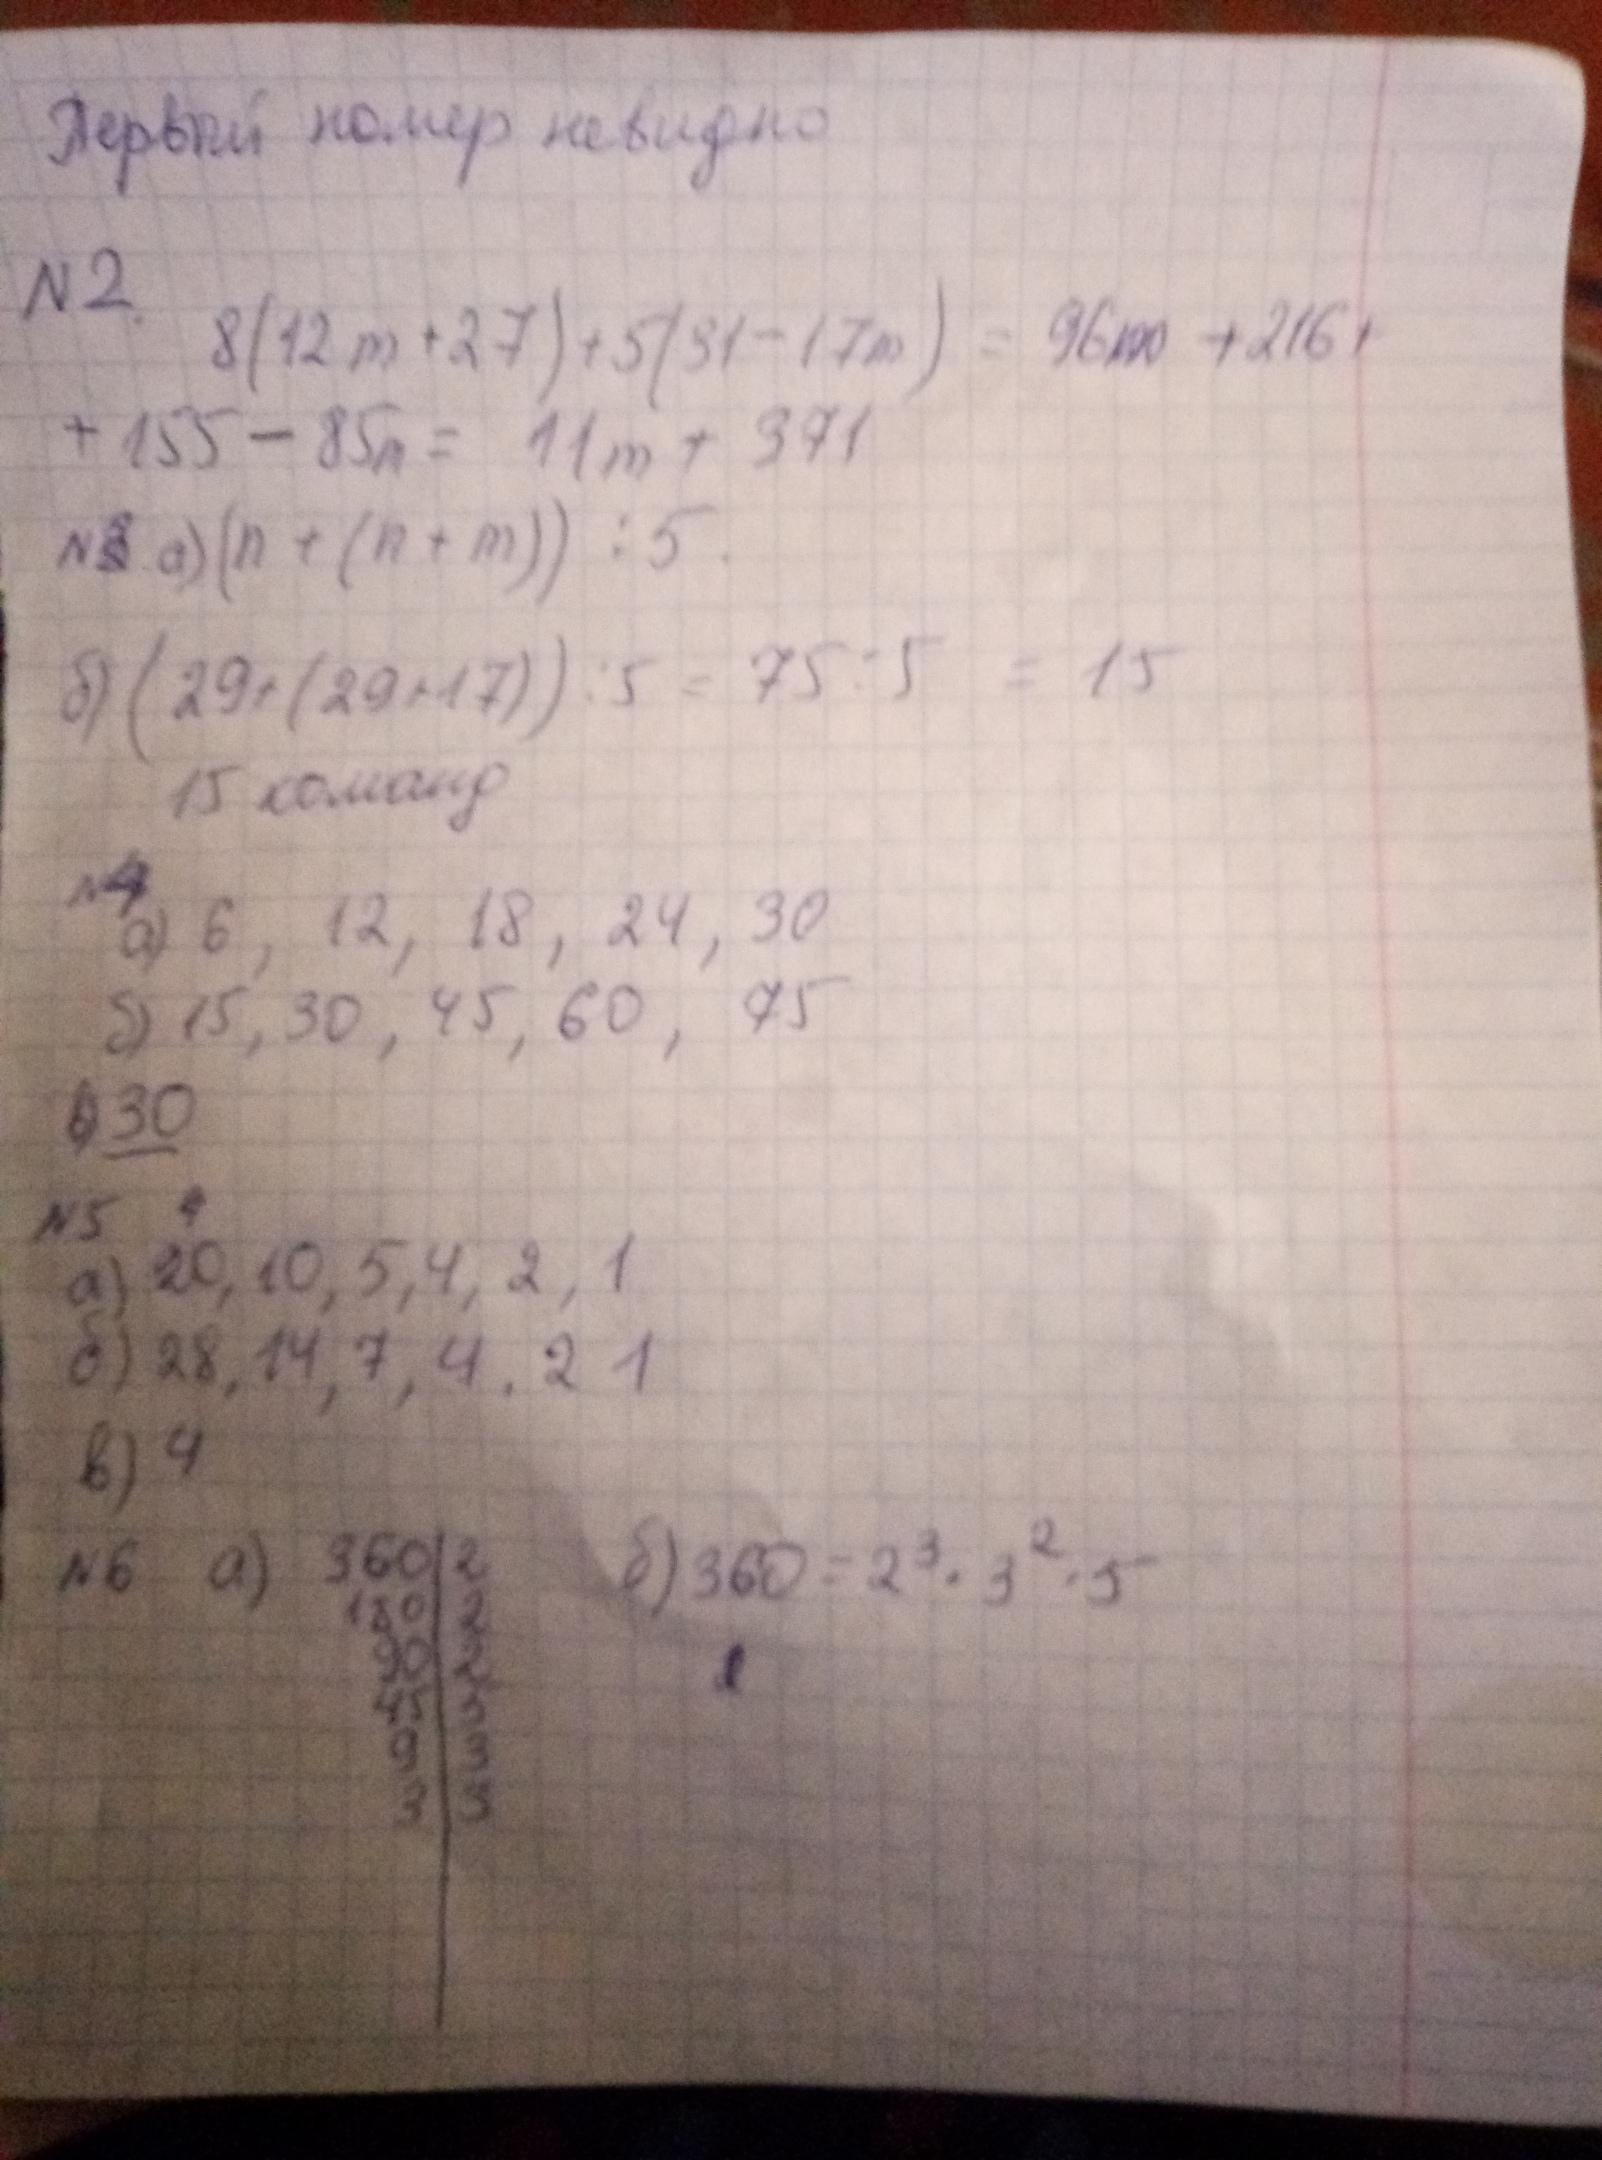 Первый номер невидно
N2.
8(12m+27)+5(31-17m) = 96m +216+
+ 155 - 85m = 11m + 371
N3 а)(n + (n + m)) : 5.
б) (29+(29+17)) : 5 = 75:5 = 15
15 команд
N4
а) 6, 12, 18, 24, 30
б) 15, 30, 45, 60, 75
в) 30
N5
а) 20, 10, 5, 4, 2, 1
б) 28, 14, 7, 4. 2 1
в) 4
N6 а) 360|2 б) 360 = 2³ · 3² · 5
180|2
90|2
45|5
9|3
3|3